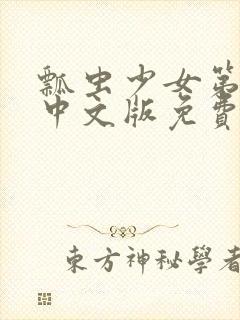 瓢虫少女第
中文版免費
東方神秘學者